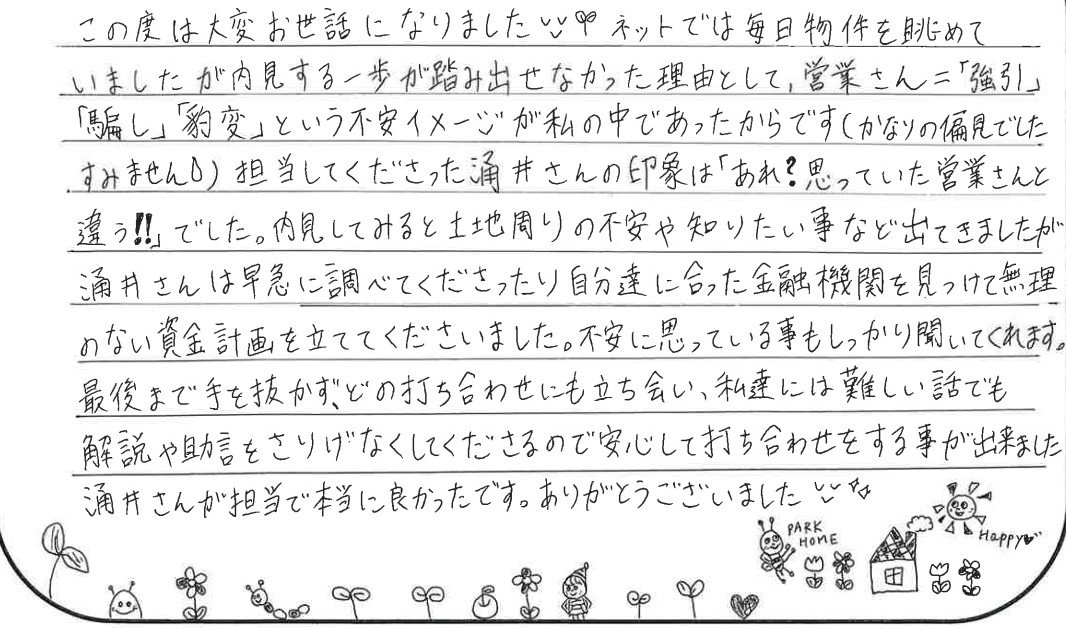 この度は大変お世話になりました ネットでは毎日物件を眺めて
いましたが内見する一歩が踏み出せなかった理由として、営業さん=「強引」
「騙し」「豹変」という不安イメージが私の中であったからです(かなりの偏見でした
すみません)担当してくださった涌井さんの印象は「あれ?思っていた営業さんと
違う!!」でした。内見してみると土地周りの不安や知りたい事など出てきましたが
涌井さんは早急に調べてくださったり自分達に合った金融機関を見つけて無理
のない資金計画を立ててくださいました。不安に思っている事もしっかり聞いてくれます。
最後まで手を抜かず、どの打ち合わせにも立ち会い、私達には難しい話でも
解説や助言をさりげなくしてくださるので安心して打ち合わせをする事が出来ました
涌井さんが担当で本当に良かったです。ありがとうございました
PARK
HOME
Happy♥